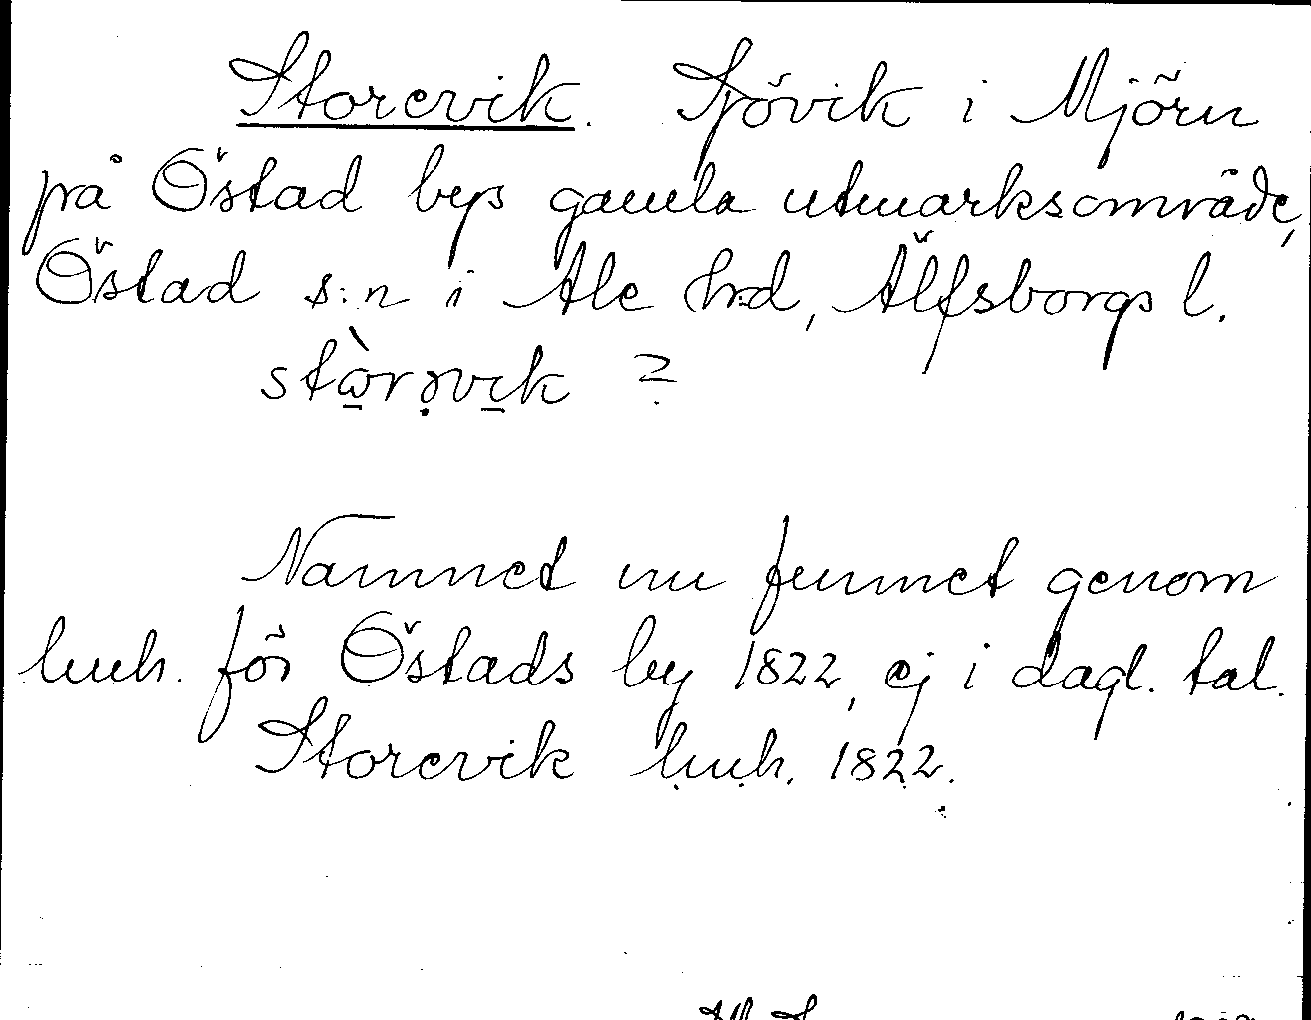 Storevik. Sjövik i Mjörn
på Östad bys gamla utmarksområde,
Östad s:n i Ale hrd, Älfsborgs l.
stòrəvik ?
Namnet nu funnet genom
luuh. för Östads by 1822, ej i dagl. tal.
Storevik luuh. 1822.